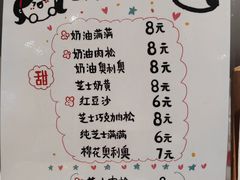 奶油满满 8元
奶油肉松 8元
奶油奥利奥 8元
甜
芝士奶黄 8元
红豆沙 6元
芝士巧克力肉松 8元
纯芝士满满 6元
棉花奥利奥 7元